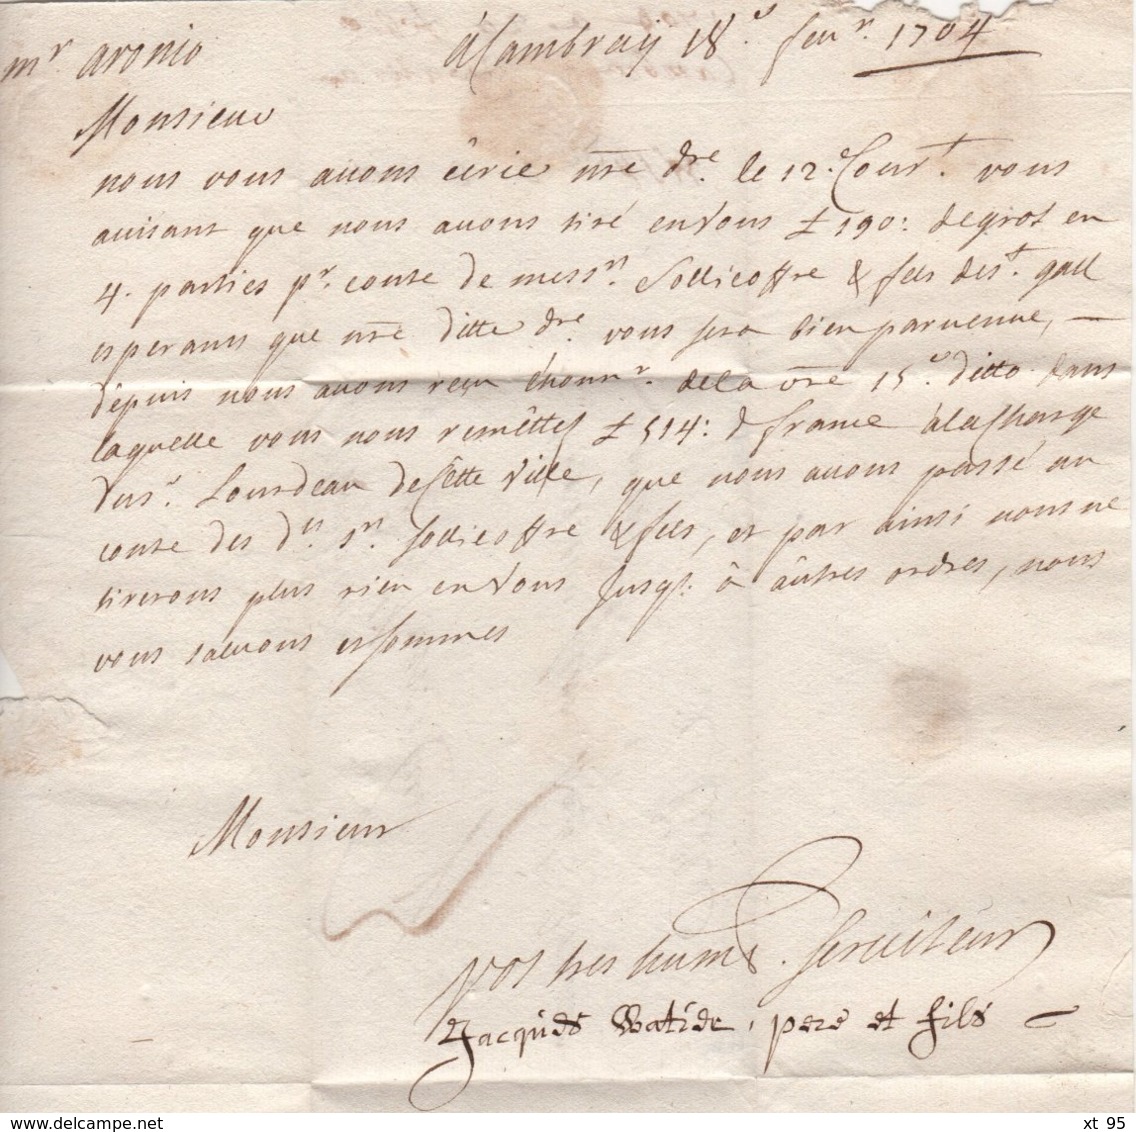 mr. aronio
à Cambray 18.e fevr. 1704
Monsieur
nous vous avons écrie nre dre. le 12.e Court. vous
avisant que nous avons tiré en vous £ 190: de gros en
4. parties pr. conte de messrs. Sollicoffre & fils de st. gall
esperans que nre ditte dre. vous sera bien parvenue, —
dépuis nous avons reçu lhonnr. de la vre 15.e ditto dans
laquelle vous nous remêttes £ 514: d france à la Charge
Lourdeau de Cêtte Ville, que nous avons passé au
conte des drs. Srs. Sollicoffre & fils, et par ainsi nous ne
tirerons plus rien en Vous Jusqs. â âutres ordres, nous
vous saluons et sommes
Monsieur
Vos tres humb. serviteur
Jacques Watide, pere et fils
www.delcampe.net
xt 95